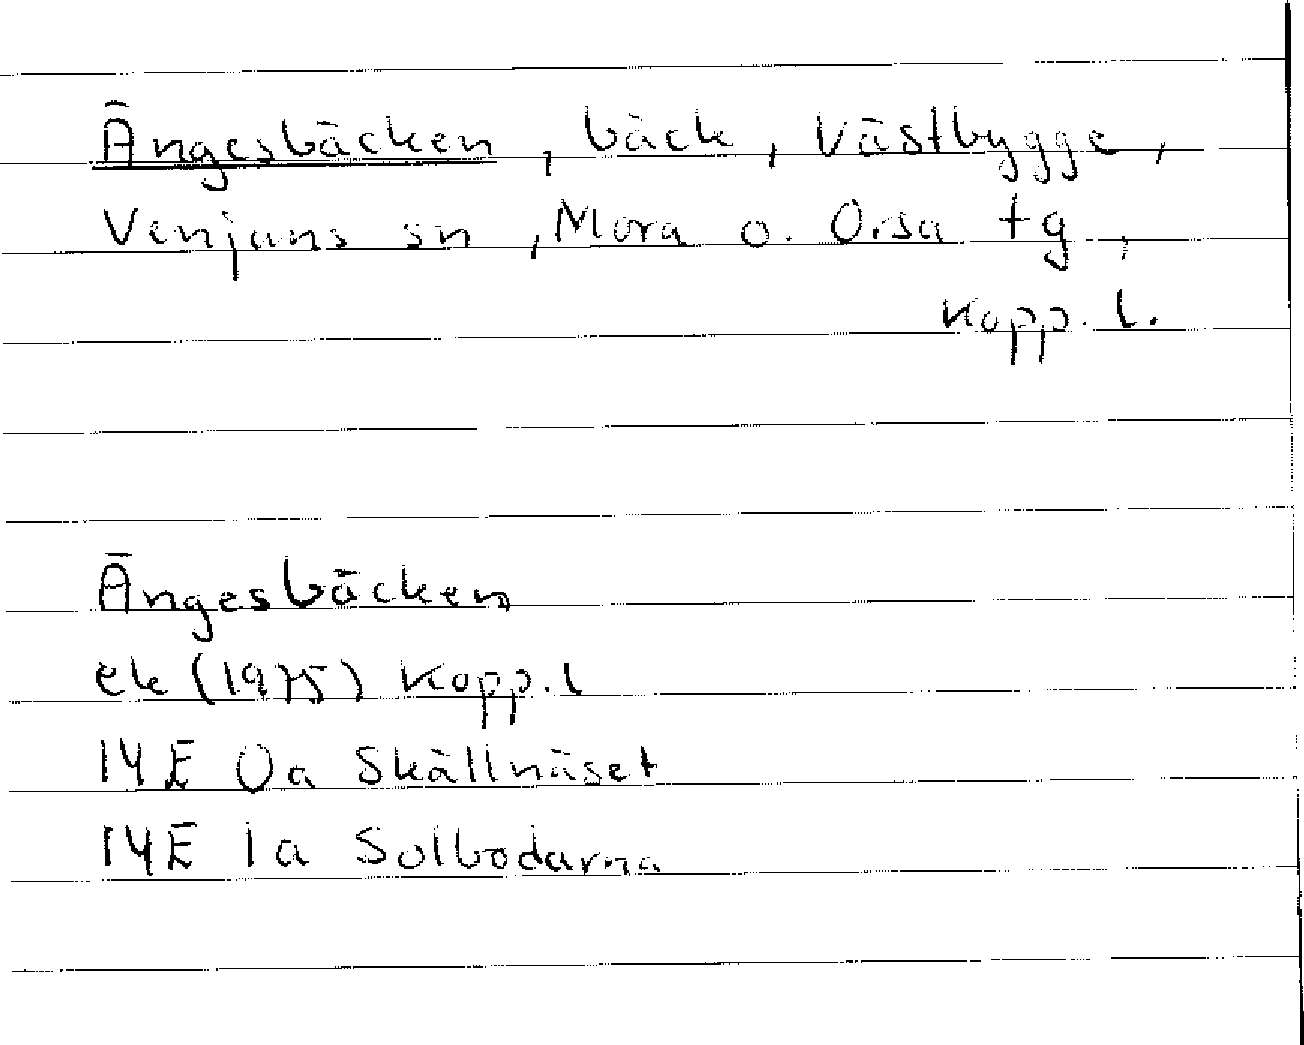 Ängesbäcken, bäck, Västbygge,
Venjans sn, Mora o. Orsa tg,
Kopp. l.
Ängesbäcken
ek (1975) Kopp. l
14E 0a Skällnäset
14E 1a Solbodarna